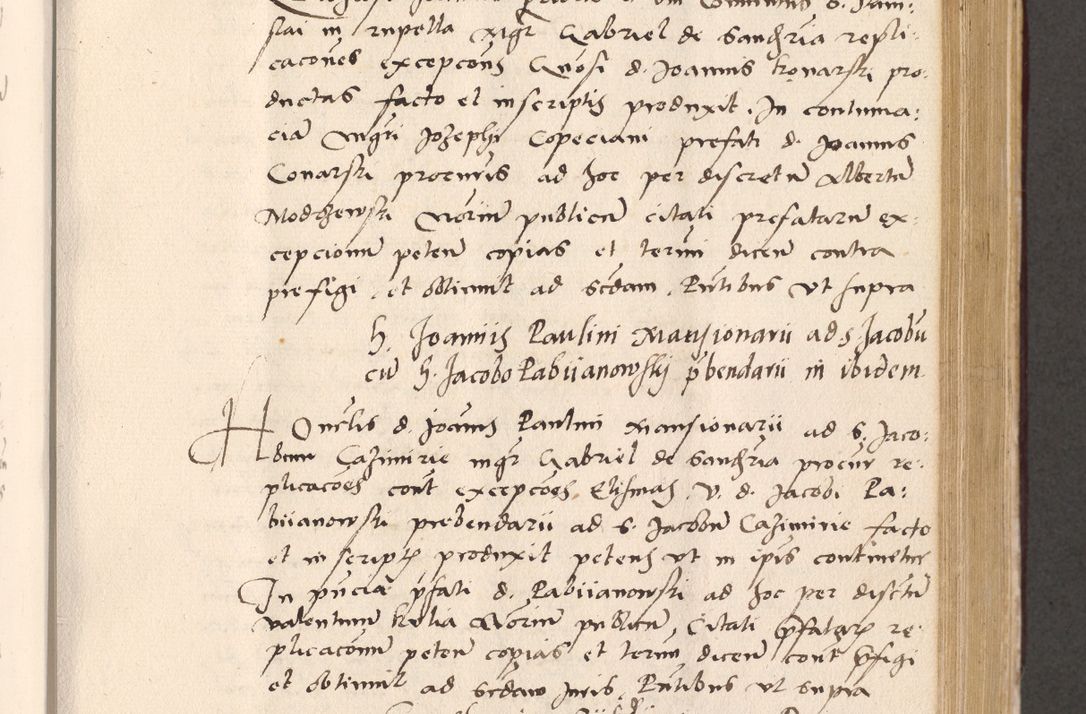 slai in rupella mgr Gabriel de Sanchria repli:
cacones excepcons Gnosi d. Joannis Konarski pro:
ductas facto et inscriptis produxit. In contuma:
cia mgri Josephi Copeciani prefati d. Joannis
Conarski procuris ad hoc per discretu Albertu
Modrzewski Noriu publicu citati prefataru ex:
cepcionu peten copias et termi dicen contra
prefigi, et obtinuit ad scdam. Pntibus ut supra
h. Joannis Paulini Mansionarii ad s. Jacobu
cu h. Jacobo Pabiianowskij pbendarii in ibidem
Honelis d. Joannis Paulini Mansionarii ad S. Jaco:
bum Cazimirie mgr Gabriel de Sanchria procur re:
plicacoes cont excepcoes Elismas V. d. Jacobi Pa:
biianowski prebendarii ad S. Jacobu Cazimirie facto
et in scriptis produxit petens ut in ipsis continetur
In pncia pfati d. Pabiianowski ad hoc per discretu
Valentinum Krelia Noriu publicu, Citati pfatar re:
plicaconu peten copias et termi dicen cont pfigi
et obtinuit ad scdam Juris. Pntibus ut supra